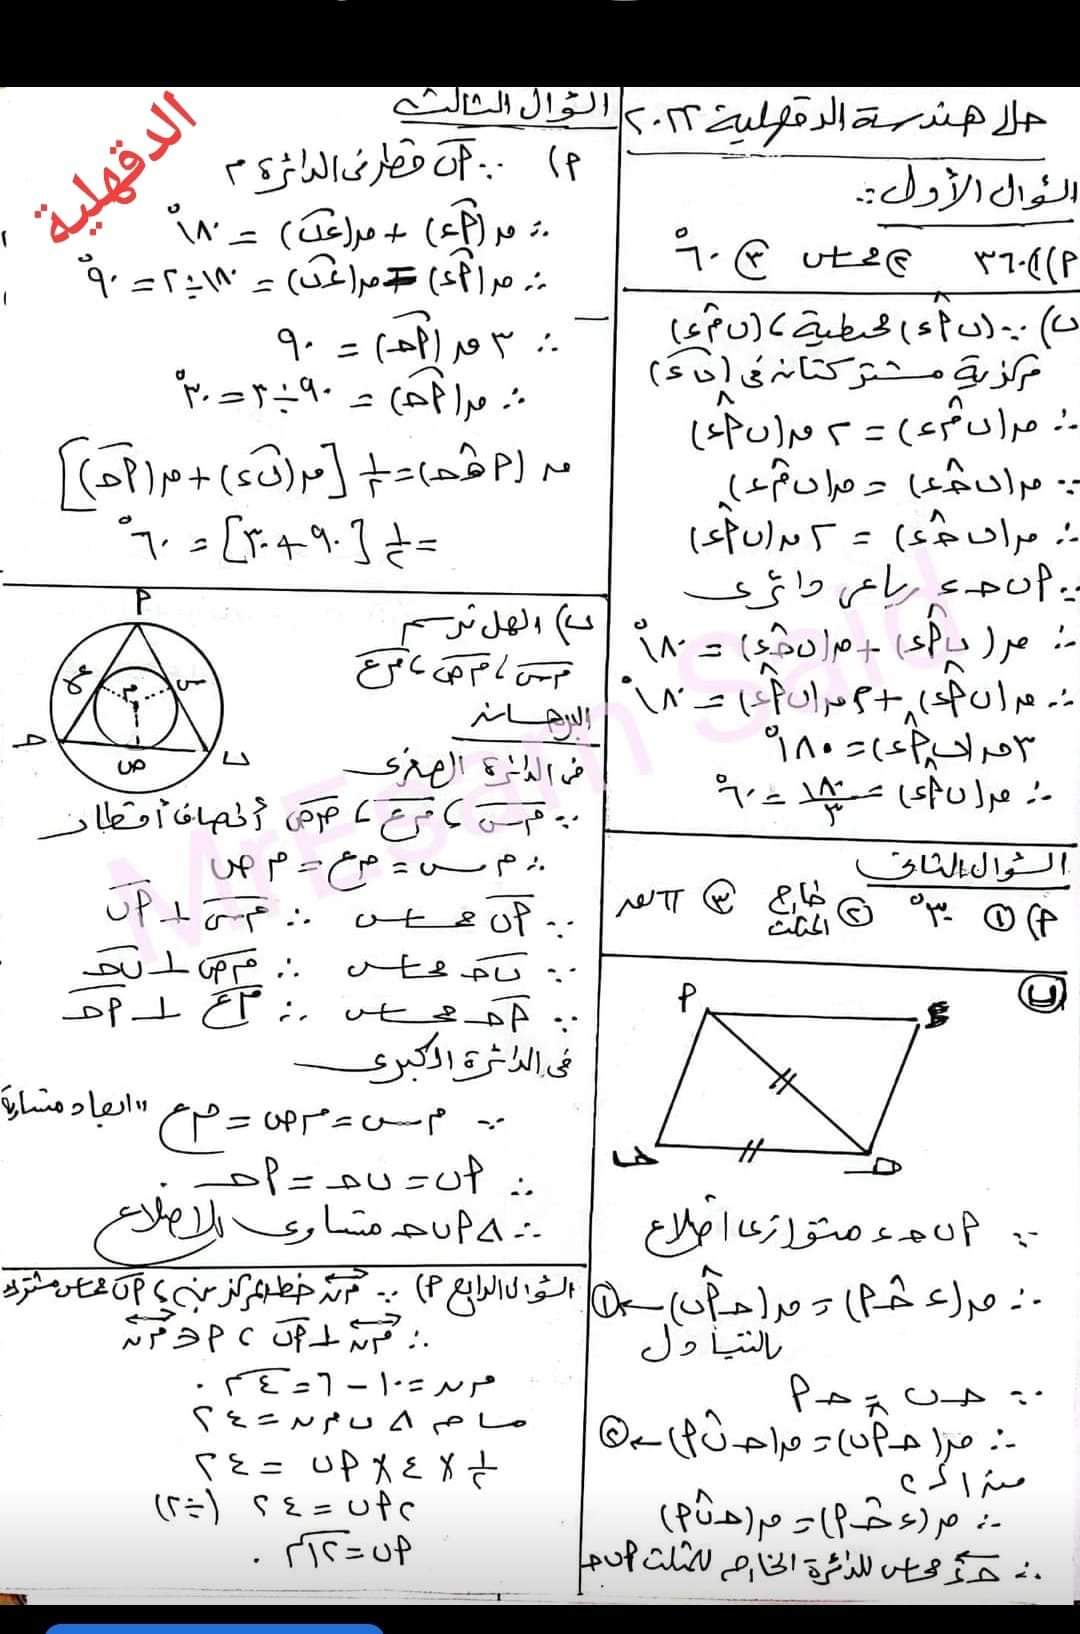 حل هندسة الدقهلية ٢٠٢٢
السؤال الأول:
٢) ١) ٣٦٠ ٢) مماس ٣) ٦٠°
ب) ∵ (ب أ^ ء) محيطية ، (ب م^ ء)
مركزية مشتركتان فى (ب ء)
∴ ق(ب م^ ء) = ٢ ق(ب أ^ ء)
∵ ق(ب ج^ ء) = ق(ب م^ ء)
∴ ق(ب ج^ ء) = ٢ ق(ب أ^ ء)
∵ أ ب ج ء رباعى دائرى
∴ ق(ب أ^ ء) + ق(ب ج^ ء) = ١٨٠°
∴ ق(ب أ^ ء) + ٢ ق(ب أ^ ء) = ١٨٠°
٣ ق(ب أ^ ء) = ١٨٠°
∴ ق(ب أ^ ء) = ١٨٠/٣ = ٦٠°
السؤال الثانى
أ) ١) ٣٠° ٢) خارج المثلث ٣) π نق
ب
أ ء
ب ج
∵ أ ب ج ء متوازى أضلاع
∴ ق(ء ج^ أ) = ق(ج أ^ ب) ← ١
بالتبادل
∵ ج ب = ج أ
∴ ق(ج أ^ ب) = ق(ج ب^ أ) ← ٢
من ١ ، ٢
∴ ق(ء ج^ أ) = ق(ج ب^ أ)
∴ ج ء مماس للدائرة الخارجة للمثلث أ ب ج
الدقهلية
السؤال الثالث
أ) ∵ أ ب قطر فى الدائرة م
∴ ق(أ ء) + ق(ء ب) = ١٨٠°
∴ ق(أ ء) = ق(ء ب) = ١٨٠ ÷ ٢ = ٩٠°
∴ ٣ ق(أ ج) = ٩٠
∴ ق(أ ج) = ٩٠ ÷ ٣ = ٣٠°
ق(أ هـ^ ج) = ١/٢ [ق(ب ء) + ق(أ ج)]
= ١/٢ [٩٠ + ٣٠] = ٦٠°
أ
ع س
م
ج ب
ص
ب) العمل نرسم
م س ، م ص ، م ع
البرهان
فى الدائرة الصغرى
∵ م س ، م ع ، م ص أنصاف أقطار
∴ م س = م ع = م ص
∵ أ ب مماس ∴ م س ⊥ أ ب
∵ ب ج مماس ∴ م ص ⊥ ب ج
∵ أ ج مماس ∴ م ع ⊥ أ ج
فى الدائرة الكبرى
∵ م س = م ص = م ع "ابعاد متساوية
∴ أ ب = ب ج = أ ج
∴ Δ أ ب ج متساوى الاضلاع
السؤال الرابع أ) ∵ م ن خط المركزين ، أ ب مماس مشترك
∴ م ن ⊥ أ ب ، أ ∈ م ن
م ن = ١٠ − ٦ = ٤ سم
مساحة Δ ب م ن = ٢٤
١/٢ × ٤ × أ ب = ٢٤
٢ أ ب = ٢٤ (÷٢)
أ ب = ١٢ سم
MrEsam Said